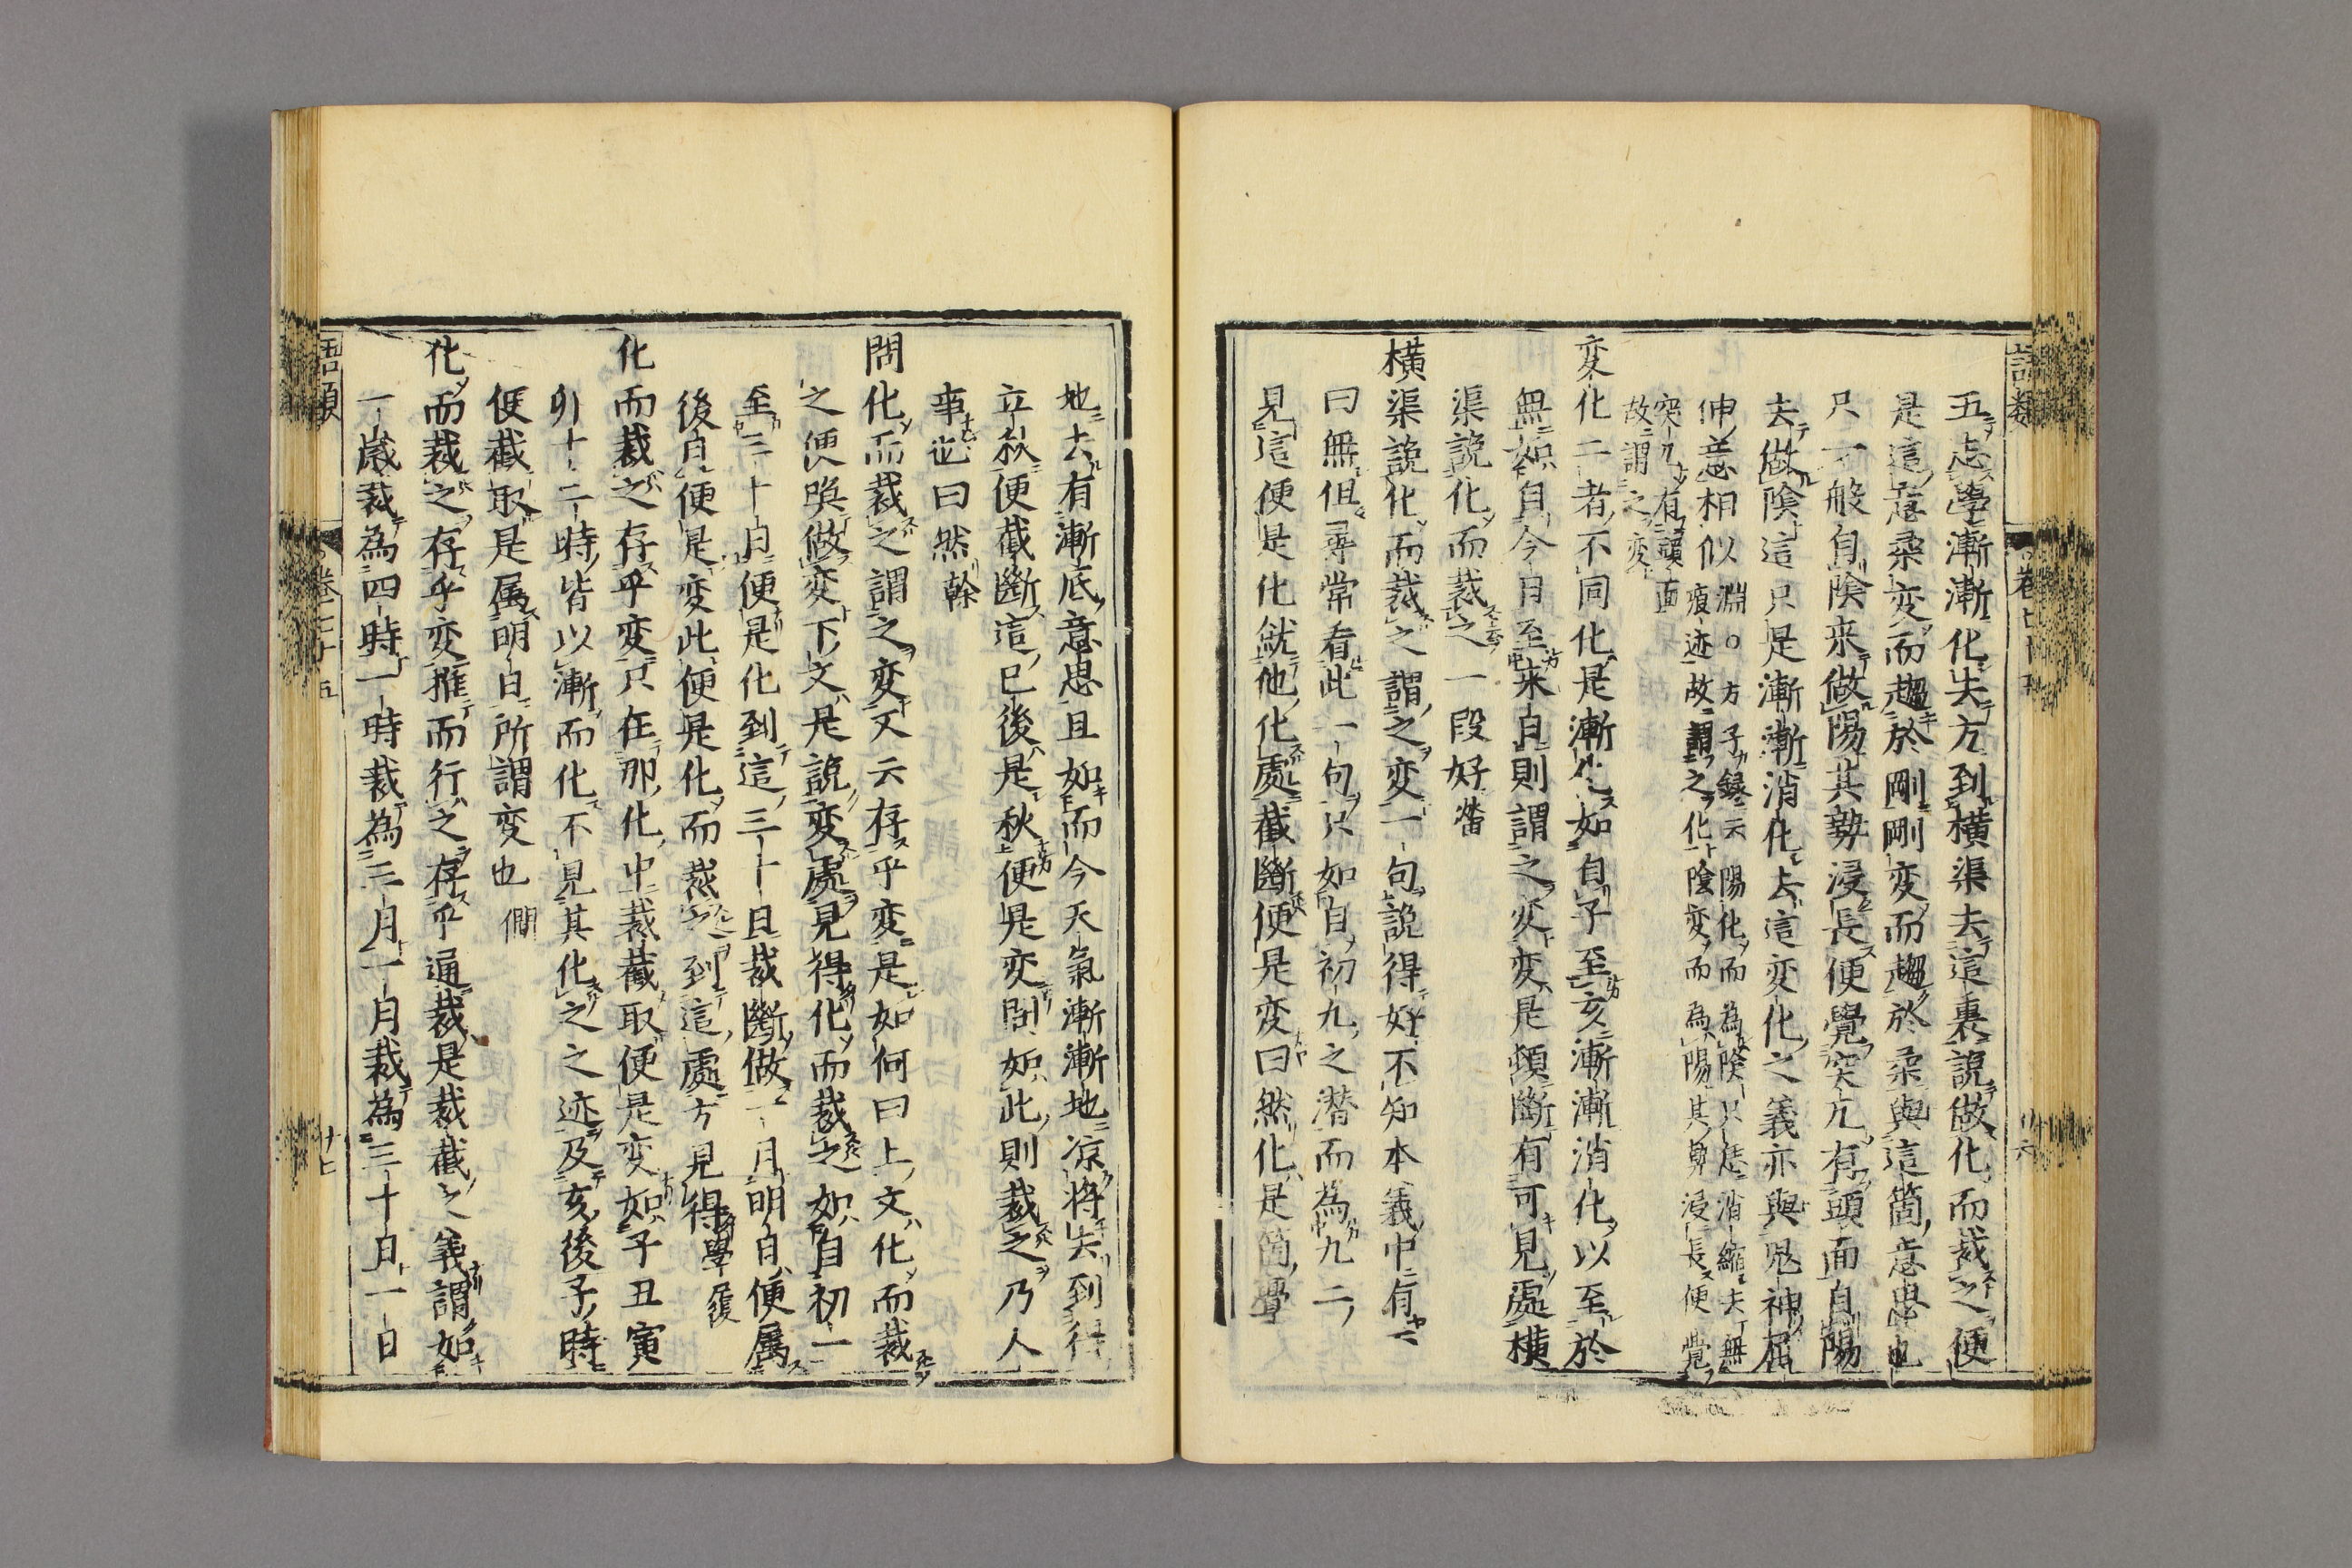 語類
卷七十五
十六
五志學漸漸化去方到横渠去這裏說做化而裁之便
是這意柔変而趨於剛剛変而趨於柔與這箇意思也
只一般自陰来做陽其勢浸長便覺突兀有頭面自陽
去做陰這只是漸漸消化去這変化之義亦與鬼神屈
伸意相似淵○方子録云陽化而為陰只恁消縮去無
痕迹故謂之化陰変而為陽其勢浸長便覺
突兀有頭面
故謂之変
変化二者不同化是漸化如自子至亥漸漸消化以至於
無如自今日至来日則謂之変変是頓斷有可見處横
渠說化而裁之一段好㽦
横渠說化而裁之謂之変一句說得好不知本義中有
曰無但尋常看此一句只如自初九之潜而為九二
見這便是化就他化處截斷便是変曰然化是箇亹亹
地去有漸底意思且如而今天氣漸漸地凉將去到行
立秋便截斷這已後是秋便是変問如此則裁之乃人
事也曰然榦
問化而裁之謂之変又云存乎変是如何曰上文化而裁
之便喚做変下文是說変處見得化而裁之如自初一
至三十日便是化到這三十日裁斷做一月明日便属
後日便是変此便是化而裁之到這處方見得學履
化而裁之存乎変只在那化中裁截取便是変如子丑寅
卯十二時皆以漸而化不見其化之之迹及亥後子時
便截取是属明日所謂変也僩
化而裁之存乎変推而行之存乎通裁是裁截之義謂如
一歳裁為四時一時裁為三月一月裁為三十日一日
語類
卷七十五
十七